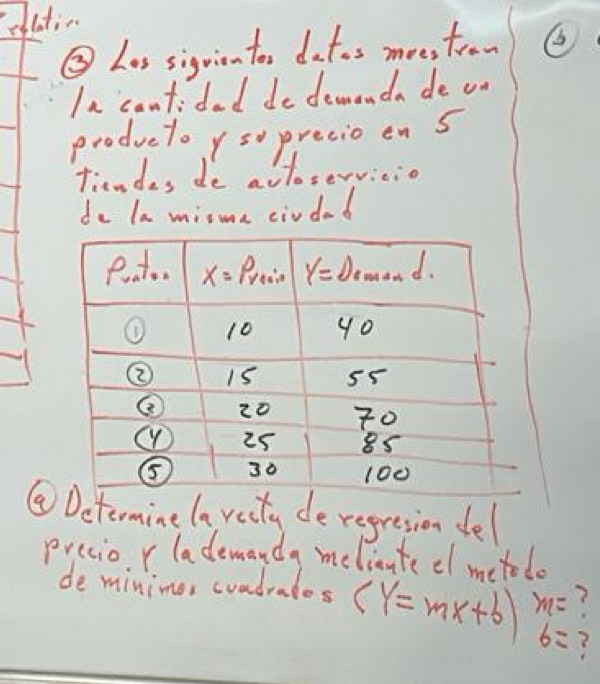 ③ Los siguientes datos muestran
la cantidad de demanda de un
producto y su precio en 5
tiendas de autoservicio
de la misma ciudad
Puntos X = Precio Y = Demand.
① 10 40
② 15 55
③ 20 70
④ 25 85
⑤ 30 100
ⓐ Determine la recta de regresion del
precio y la demanda mediante el metodo
de minimos cuadrados (Y = mx + b) m = ?
b = ?
ⓑ